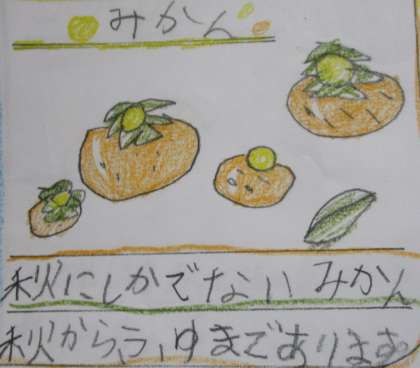 みかん
秋にしかでないみかん
秋から、ふゆまであります